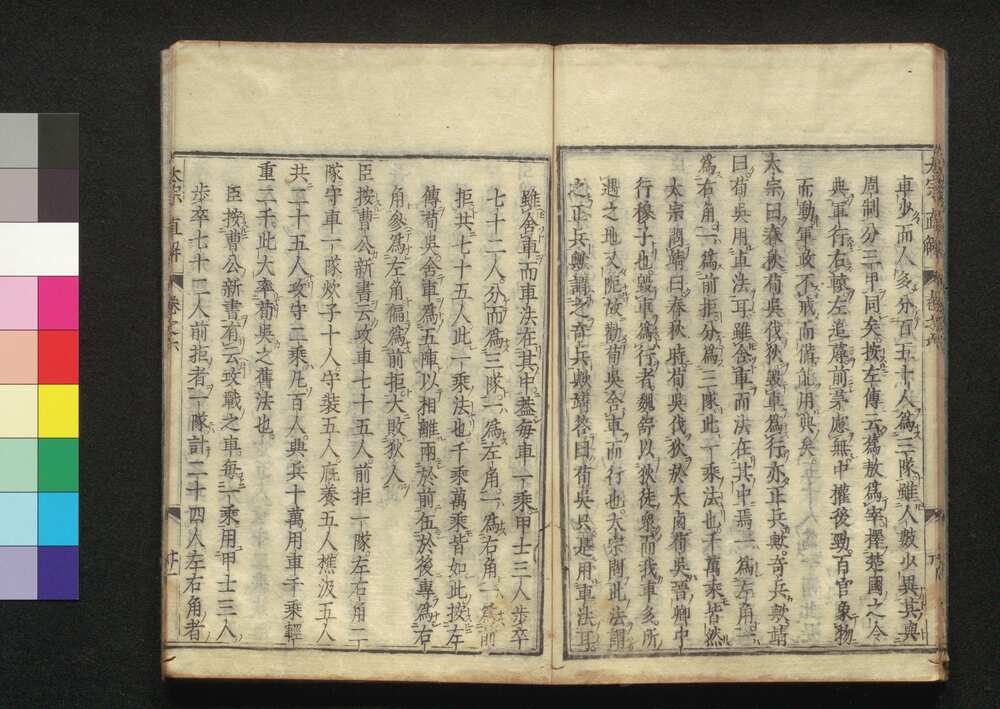 車少而人多分百五十人爲三隊雖人數少異其與
周制分三甲同矣按左傳云蔿敖爲宰擇楚國之令
典軍行右轅左追蓐前茅慮無中權後勁百官象物
而動軍政不戒而備能用典矣
太宗曰春秋荀吳伐狄毀車爲行亦正兵歟奇兵歟靖
曰荀吳用車法耳雖舍車而法在其中焉一爲左角一
爲右角一爲前拒分爲三隊此一乘法也千萬乘皆然
太宗問靖曰春秋時荀吳伐狄於大鹵荀吳晉卿中
行穆子也毀車爲行者魏舒以狄徒衆而我車多所
遇之地又阨故勸荀吳舍車而行也太宗問此法謂
之正兵歟謂之奇兵歟靖答曰荀吳只是用車法耳
雖舍車而車法在其中蓋每車一乘甲士三人步卒
七十二人分而爲三隊一爲左角一爲右角一爲前
拒共七十五人此一乘法也千乘萬乘皆如此按左
傳荀吳舍車爲五陣以相離兩於前伍於後專爲右
角參爲左角偏爲前拒大敗狄人
臣按曹公新書云攻車七十五人前拒一隊左右角二
隊守車一隊炊子十人守裝五人廐養五人樵汲五人
共二十五人攻守二乘凡百人興兵十萬用車千乘輕
重二千此大率荀吳之舊法也
臣按曹公新書有云攻戰之車每一乘用甲士三人
步卒七十二人前拒者一隊計二十四人左右角者
太宗 直解
卷之六
廿一